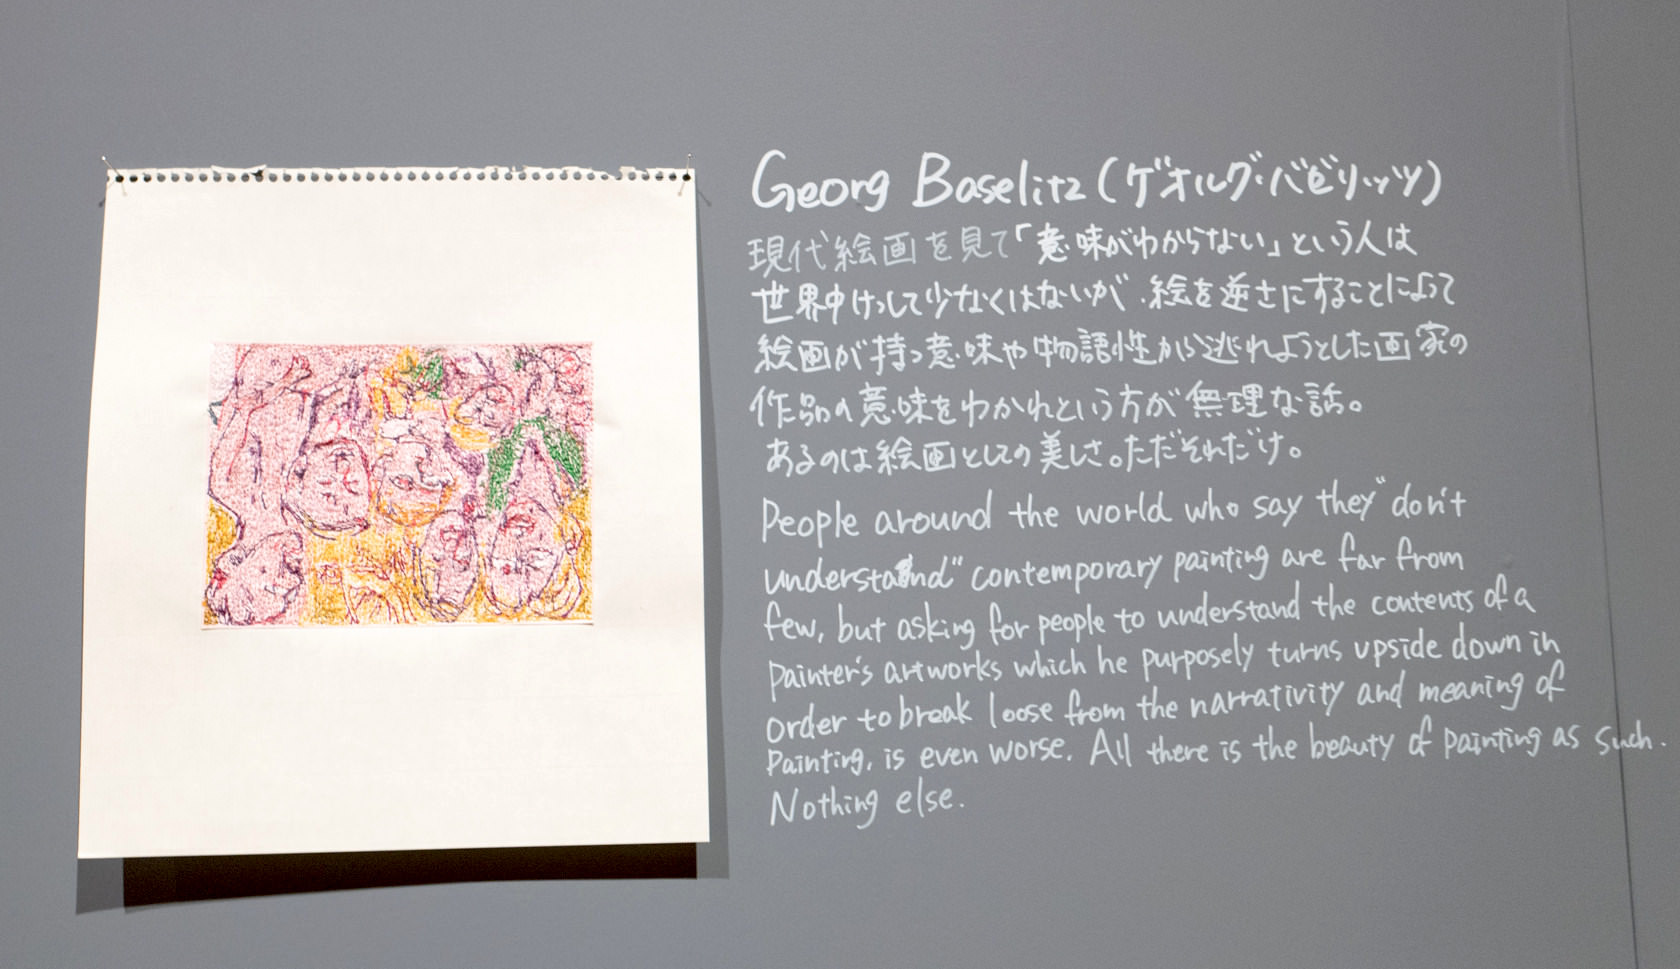 Georg Baselitz (ゲオルグ・バゼリッツ)
現代絵画を見て「意味がわからない」という人は
世界中けっして少なくはないが、絵を逆さにすることによって
絵画が持つ意味や物語性から逃れようとした画家の
作品の意味をわかれという方が無理な話。
あるのは絵画としての美しさ。ただそれだけ。
People around the world who say they "don't
understand" contemporary painting are far from
few, but asking for people to understand the contents of a
painter's artworks which he purposely turns upside down in
order to break loose from the narrativity and meaning of
painting, is even worse. All there is the beauty of painting as such.
Nothing else.